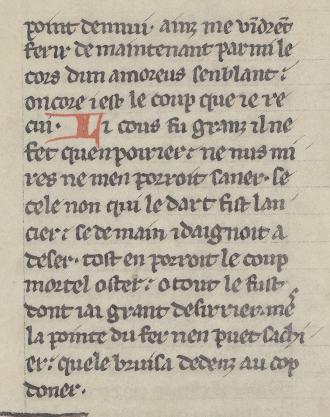 point dennui. ainz me vindrẽt
ferir de maintenant parmi le
cors dun amoreus senblant:
oncore i est le coup que ie re
cui. Li cous fu granz il ne
fet quenpoirier: ne nus mi
res ne men porroit saner. se
cele non qui le dart fist lan
cier: se de main i daignoit a
deser. tost en porroit le coup
mortel oster: otout le fust
dont iai grant desirrier. mes
la pointe du fer nen puet sachi
er: quele bruisa dedenz au cop
doner.